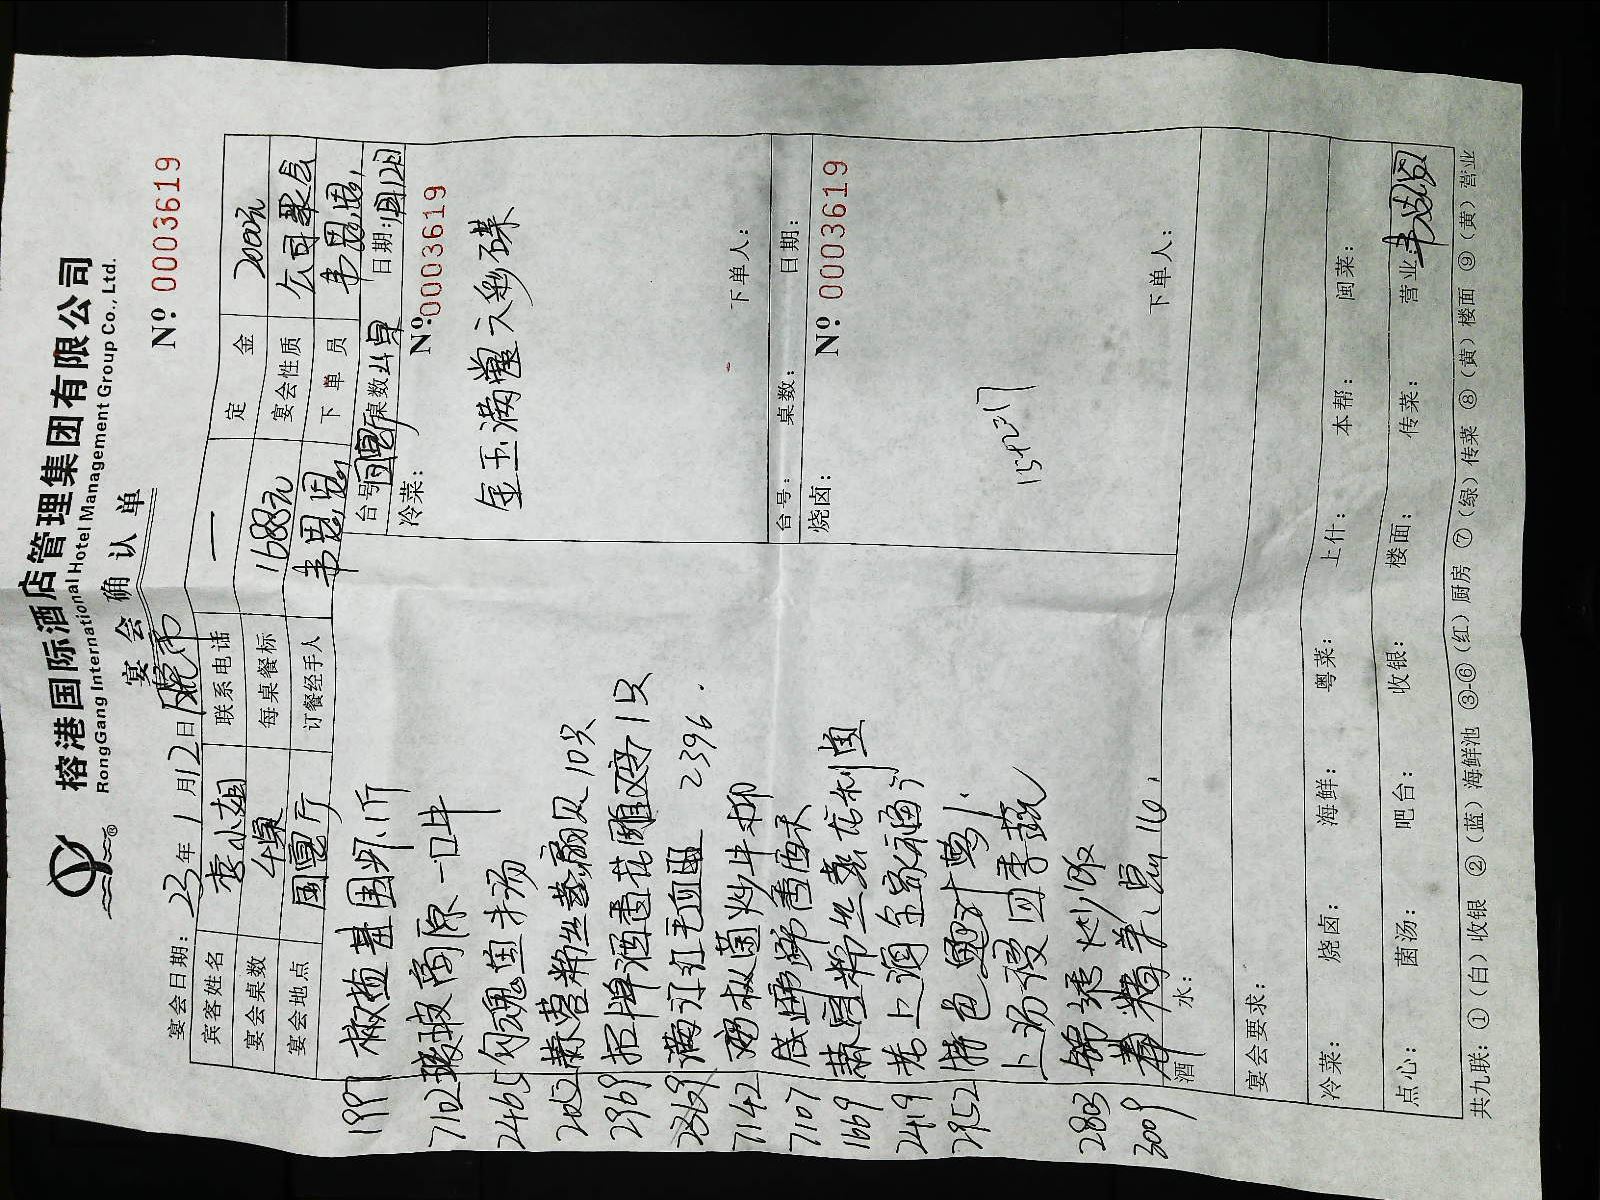 榕港国际酒店管理集团有限公司
RongGang International Hotel Management Group Co., Ltd.
宴会确认单
№ 0003619
宴会日期: 23年1月12日 晚市
宾客姓名 李小姐 联系电话 一 定金 2000元
宴会桌数 4桌 每桌餐标 1688元 宴会性质 公司聚会
宴会地点 国宴厅 订餐经手人 韦思思 下单员 韦思思
1997 椒盐基围虾1斤
7102 玻高原一口牛
2465 勾魂鱼羊汤
2052 蒜蓉粉丝蒸扇贝10只
2969 招牌酒香花雕鸡1只
2369 满江红毛血旺 2396.
7142 椒菌炒牛柳
7107
1669 粉丝蒸龙利鱼
2419 老上海全家福
2952 特色
上汤浸四季蔬
2803 锦绣炒饭
3009 精美点 16.
台号: 国宴厅 桌数: 4桌 日期: 1月12日
冷菜: № 0003619
金玉满堂八彩碟
下单人:
台号: 桌数: 日期:
烧卤: № 0003619
下单人:
酒水:
宴会要求:
冷菜: 烧卤: 海鲜: 粤菜: 上什: 本帮: 闽菜:
点心: 菌汤: 吧台: 收银: 楼面: 传菜: 营业: 韦思思
共九联: ①(白)收银 ②(蓝)海鲜池 ③-⑥(红)厨房 ⑦(绿)传菜 ⑧(黄)楼面 ⑨(黄)营业